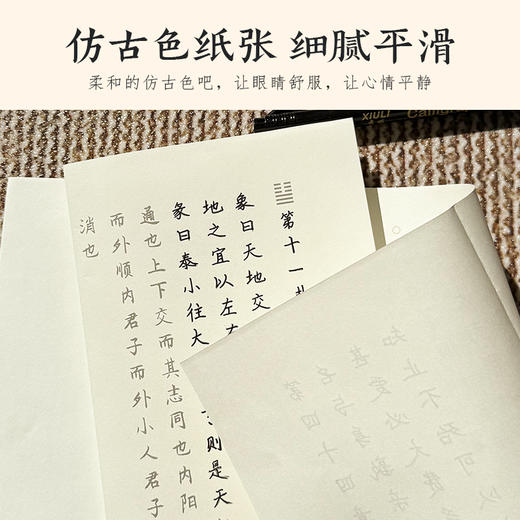 仿古色纸张 细腻平滑
柔和的仿古色吧，让眼睛舒服，让心情平静
XIULI
第十一
象曰天地交
地之宜以左
彖曰泰小往大
则是天
通也上下交而其志同也内阳
而外顺内君子而外小人君子
消也
第四十
名与身
甚爱必大
知止不殆可